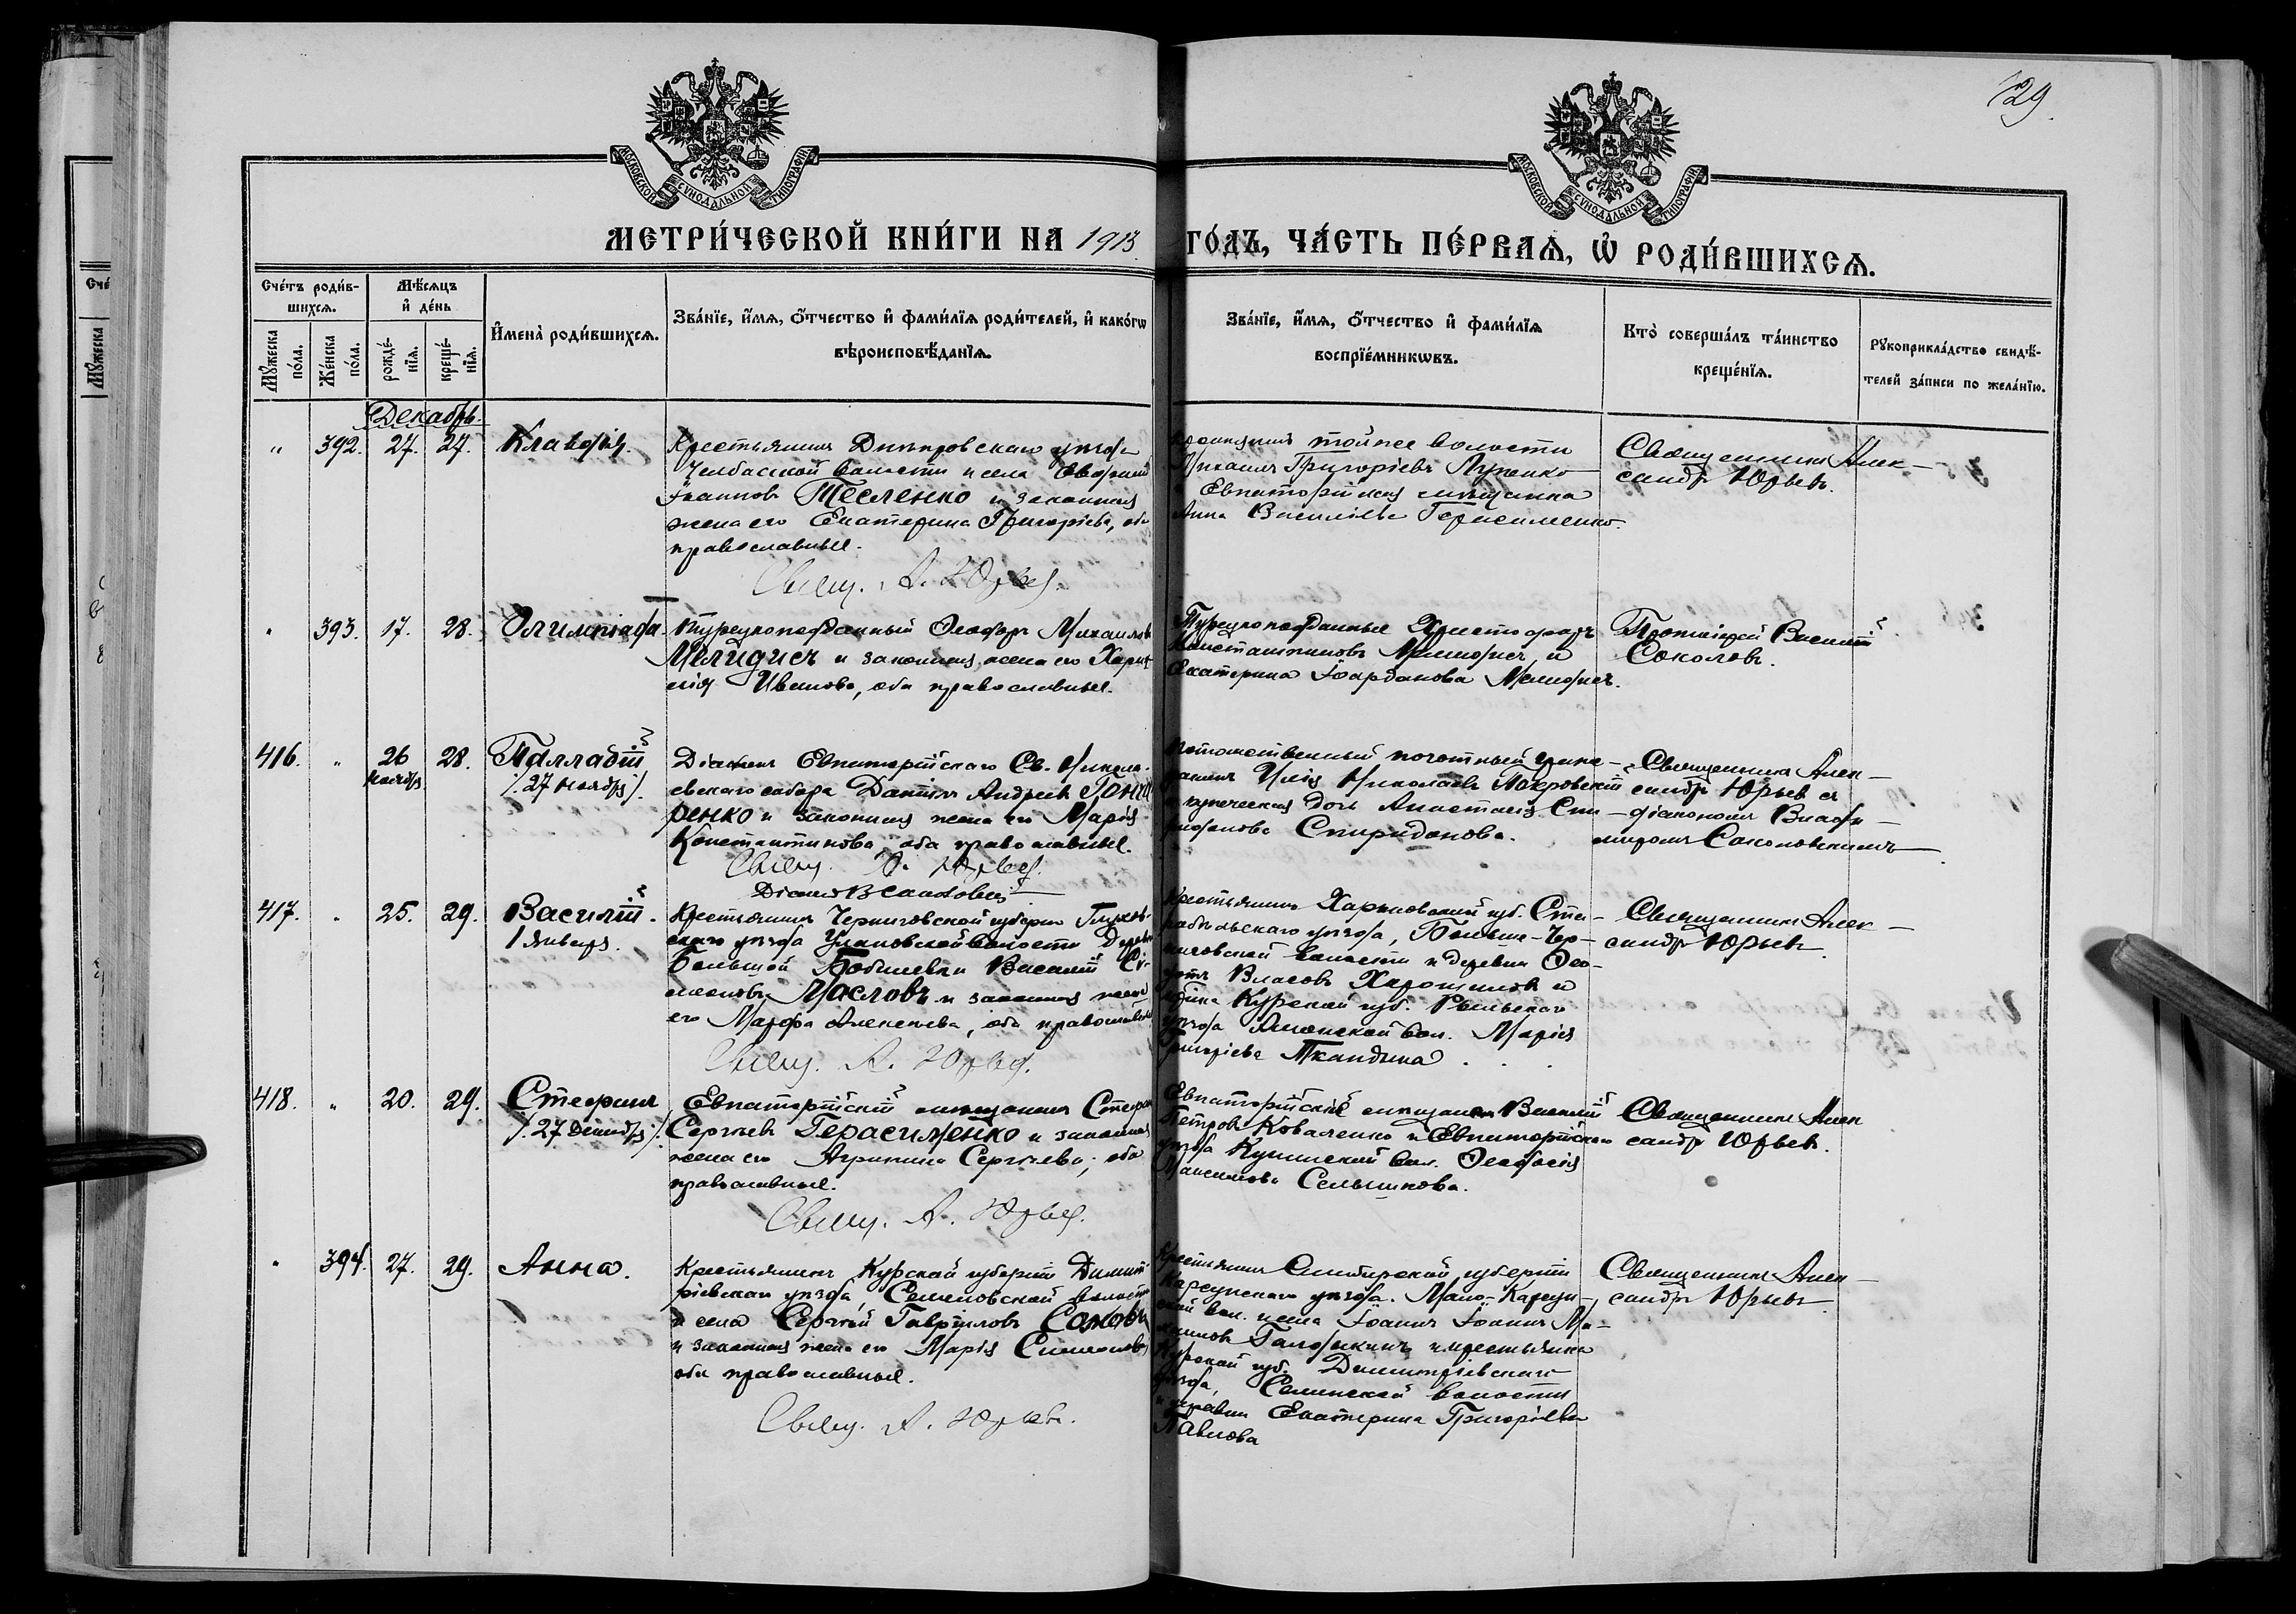 129.
МОСКОВСКОЙ СѴНОДАЛЬНОЙ ТИПОГРАФІИ
МОСКОВСКОЙ СѴНОДАЛЬНОЙ ТИПОГРАФІИ
МЕТРИ́ЧЕСКОЙ КНИ́ГИ НА 1913 ГО́ДЪ, ЧА́СТЬ ПЕ́РВАѦ, Ѡ РОДИ́ВШИХСѦ.
Сче́тъ роди́в-
шихсѧ.
Мѣ́сѧцъ
и҆ де́нь
Мꙋ́жеска
по́ла.
Же́нска
по́ла.
рожде́-
нїѧ.
креще́-
нїѧ.
И҆мена̀ роди́вшихсѧ.
Зва́нїе, и҆́мѧ, ѻ҆́тчество и҆ фами́лїѧ роди́телей, и҆ како́гѡ
вѣроисповѣ́данїѧ.
Зва́нїе, и҆́мѧ, ѻ҆́тчество и҆ фами́лїѧ
воспрїе́мникѡвъ.
Кто̀ соверша́лъ та́инство
креще́нїѧ.
Рꙋкоприкла́дство свидѣ́-
телей за́писи по жела́нїю.
Декабрь.
„ 392. 27. 27. Клавдія.
Крестьянинъ Днѣпровскаго уѣзда
Челбасской волости и села
Іоанновъ Тесленко и законная
жена его Екатерина Григорьева, оба
православные.
Свящ. А. Юрьев.
тойже волости
Михаилъ Григоріевъ Луценко
и Евпаторійская мѣщанка
Анна Василіева Герасименко.
Священникъ Алек-
сандръ Юрьевъ.
„ 393. 17. 28. Олимпіада.
Турецкоподданный Ѳеодоръ Михаиловъ
Мелидисъ и законная жена его
Иванова, оба православные.
Турецкоподданные Христофоръ
Константиновъ и
Екатерина Іорданова
Протоіерей Василій
Соколовъ.
416. „ 26 Ноября 28. Палладій
/.27 Ноября/.
Діаконъ Евпаторійскаго Св. Никола-
евскаго собора Даніилъ Андреевъ Гонча
ренко и законная жена его Марія
Константинова, оба православные.
Свящ. А. Юрьев.
Діаконъ В
Потомственный почетный граж-
данинъ Илія Николаевъ Покровскій
и купеческая дочь Анастасія Спи-
ридонова Спиридонова.
Священникъ Алек-
сандръ Юрьев съ
діакономъ Влади-
миромъ Соколовскимъ
417. „ 25. 29. Василій.
1 Января.
Крестьянинъ Черниговской губерніи Глухов-
скаго уѣзда Улановской волости Деревни
Большой Бобылевки Василій Си-
меоновъ Масловъ и законная жена
его Марфа Алексѣева, оба православные
Свящ. А. Юрьев.
Крестьянинъ Харьковской губ. Ста-
робѣльскаго уѣзда, Больше-Чер-
ниговской волости и деревни Ѳео-
Власовъ Хорошиловъ и
Курской губ. Рыльскаго
уѣзда Амонской вол. Марія
Григоріева Ткандина.
Священникъ Алек-
сандръ Юрьевъ.
418. „ 20. 29. Стефанъ
/.27 Декабря/.
Евпаторійскій мѣщанинъ Стефанъ
Сергѣевъ Герасименко и законная
жена его Агрипина Сергѣева, оба
православные.
Свящ. А. Юрьев.
Евпаторійскій мѣщанинъ Василій
Петровъ Коваленко и Евпаторійскаго
уѣзда вол. Ѳеодосія
Максимова Сельникова.
Священникъ Алек
сандръ Юрьев.
„ 394. 27. 29. Анна.
Крестьянинъ Курской губерніи Димит-
ріевскаго уѣзда, волости
и села Сергѣй Гавріиловъ Сомовъ
и законная жена его Марія Симеонова,
оба православные.
Свящ. А. Юрьевъ.
Крестьянинъ Симбирской губерніи
Карсунскаго уѣзда. Мало-Карсун-
ской вол. и села Іоаннъ Іоаннъ
и крестьянка
Курской губ. Димитріевскаго
уѣзда, волости
и деревни Екатерина Григоріева
Павлова
Священникъ Алек-
сандръ Юрьевъ